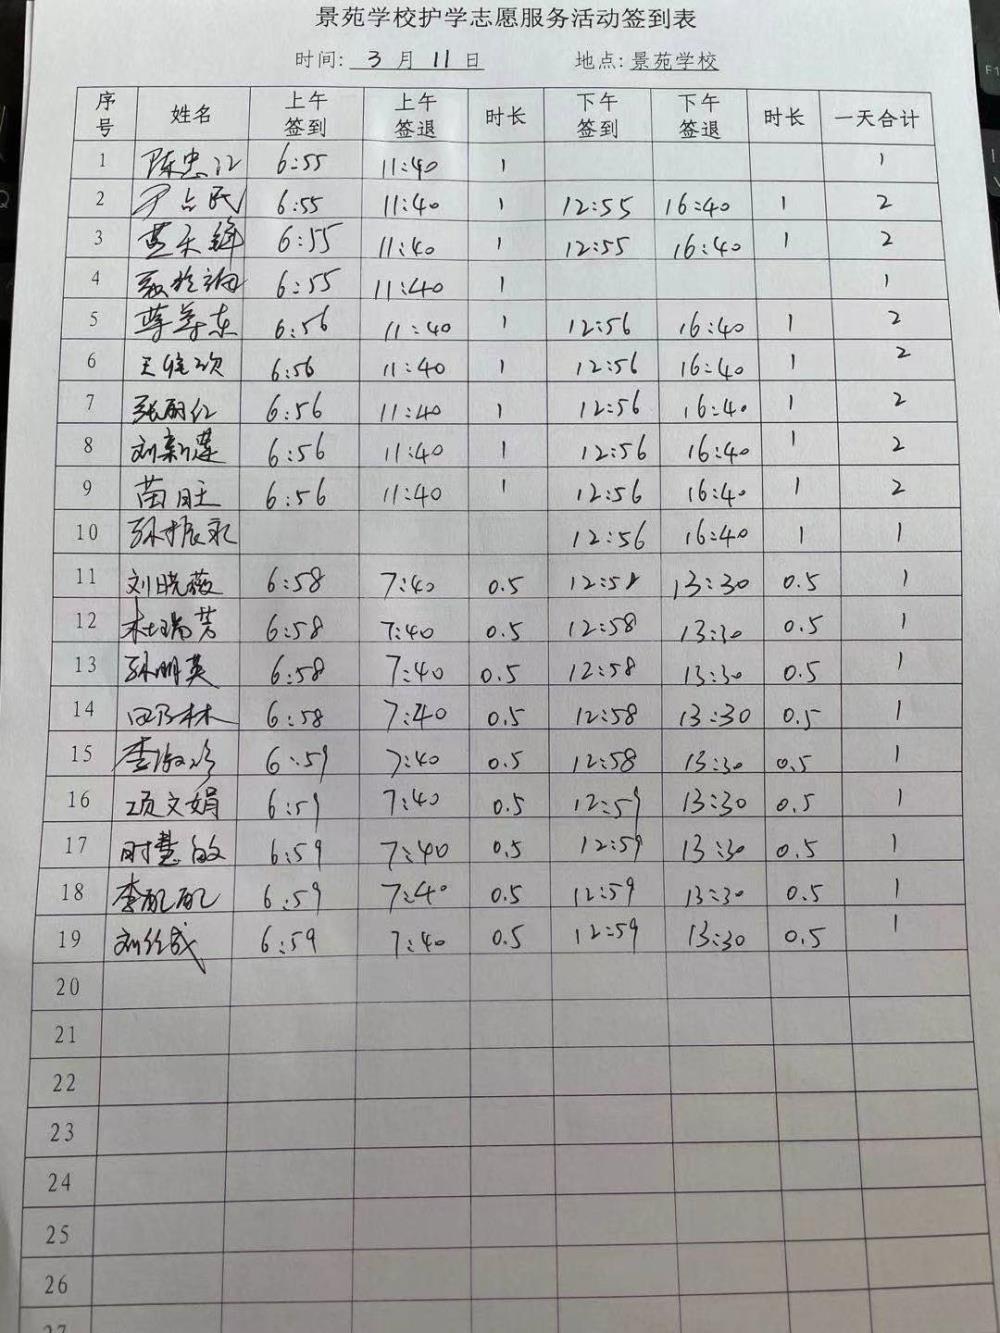 景苑学校护学志愿服务活动签到表
时间: 3 月 11 日 地点: 景苑学校
序号 姓名 上午签到 上午签退 时长 下午签到 下午签退 时长 一天合计
1 陈忠江 6:55 11:40 1 1
2 尹占民 6:55 11:40 1 12:55 16:40 1 2
3 6:55 11:40 1 12:55 16:40 1 2
4 6:55 11:40 1 1
5 6:56 11:40 1 12:56 16:40 1 2
6 6:56 11:40 1 12:56 16:40 1 2
7 张丽红 6:56 11:40 1 12:56 16:40 1 2
8 刘新莲 6:56 11:40 1 12:56 16:40 1 2
9 苗旺 6:56 11:40 1 12:56 16:40 1 2
10 孙振永 12:56 16:40 1 1
11 刘晓薇 6:58 7:40 0.5 12:58 13:30 0.5 1
12 杜瑞芳 6:58 7:40 0.5 12:58 13:30 0.5 1
13 孙明英 6:58 7:40 0.5 12:58 13:30 0.5 1
14 田乃林 6:58 7:40 0.5 12:58 13:30 0.5 1
15 6:59 7:40 0.5 12:58 13:30 0.5 1
16 项文娟 6:59 7:40 0.5 12:59 13:30 0.5 1
17 时慧敏 6:59 7:40 0.5 12:59 13:30 0.5 1
18 李配配 6:59 7:40 0.5 12:59 13:30 0.5 1
19 6:59 7:40 0.5 12:59 13:30 0.5 1
20
21
22
23
24
25
26
27